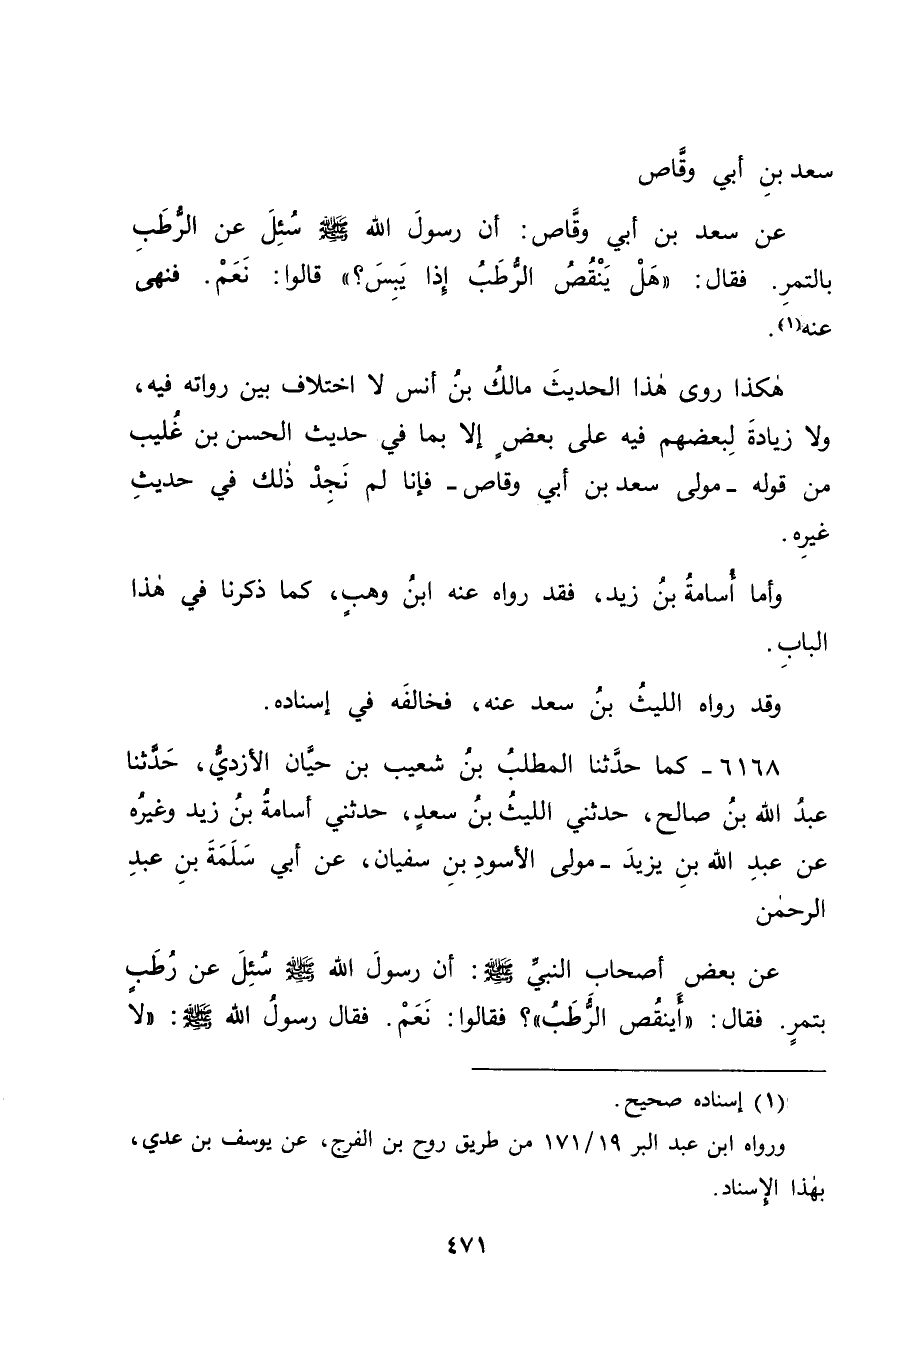 سعد بنِ أبي وقَّاص
عن سعد بن أبي وقَّاص: أن رسولَ الله ﷺ سُئِلَ عن الرُّطَبِ
بالتمرِ. فقال: «هَلْ يَنْقُصُ الرُّطَبُ إِذا يَبِسَ؟» قالوا: نَعَمْ. فنهى
عنه(١).
هٰكذا روى هٰذا الحديثَ مالكُ بنُ أنس لا اختلاف بين رواته فيه،
ولا زيادةَ لِبعضهم فيه على بعضٍ إلا بما في حديث الحسن بن غُليب
من قوله ـ مولى سعد بن أبي وقاص ـ فإنا لم نَجِدْ ذٰلك في حديثِ
غيرِه.
وأما أُسامةُ بنُ زيد، فقد رواه عنه ابنُ وهبٍ، كما ذكرنا في هٰذا
البابِ.
وقد رواه الليثُ بنُ سعد عنه، فخالفَه في إسناده.
٦١٦٨ ـ كما حدَّثنا المطلبُ بنُ شعيب بن حيَّان الأزديُّ، حَدَّثنا
عبدُ الله بنُ صالح، حدثني الليثُ بنُ سعدٍ، حدثني أسامةُ بنُ زيد وغيرُه
عن عبدِ الله بنِ يزيدَ ـ مولى الأسودِ بنِ سفيان، عن أبي سَلَمَةَ بنِ عبدِ
الرحمٰن
عن بعض أصحاب النبيِّ ﷺ: أن رسولَ الله ﷺ سُئِلَ عن رُطَبٍ
بتمرٍ. فقال: «أَينقُص الرُّطَبُ»؟ فقالوا: نَعَمْ. فقال رسولُ الله ﷺ: «لا
(١) إسناده صحيح.
ورواه ابن عبد البر ١٧١/١٩ من طريق روح بن الفرج، عن يوسف بن عدي،
بهٰذا الإِسناد.
٤٧١